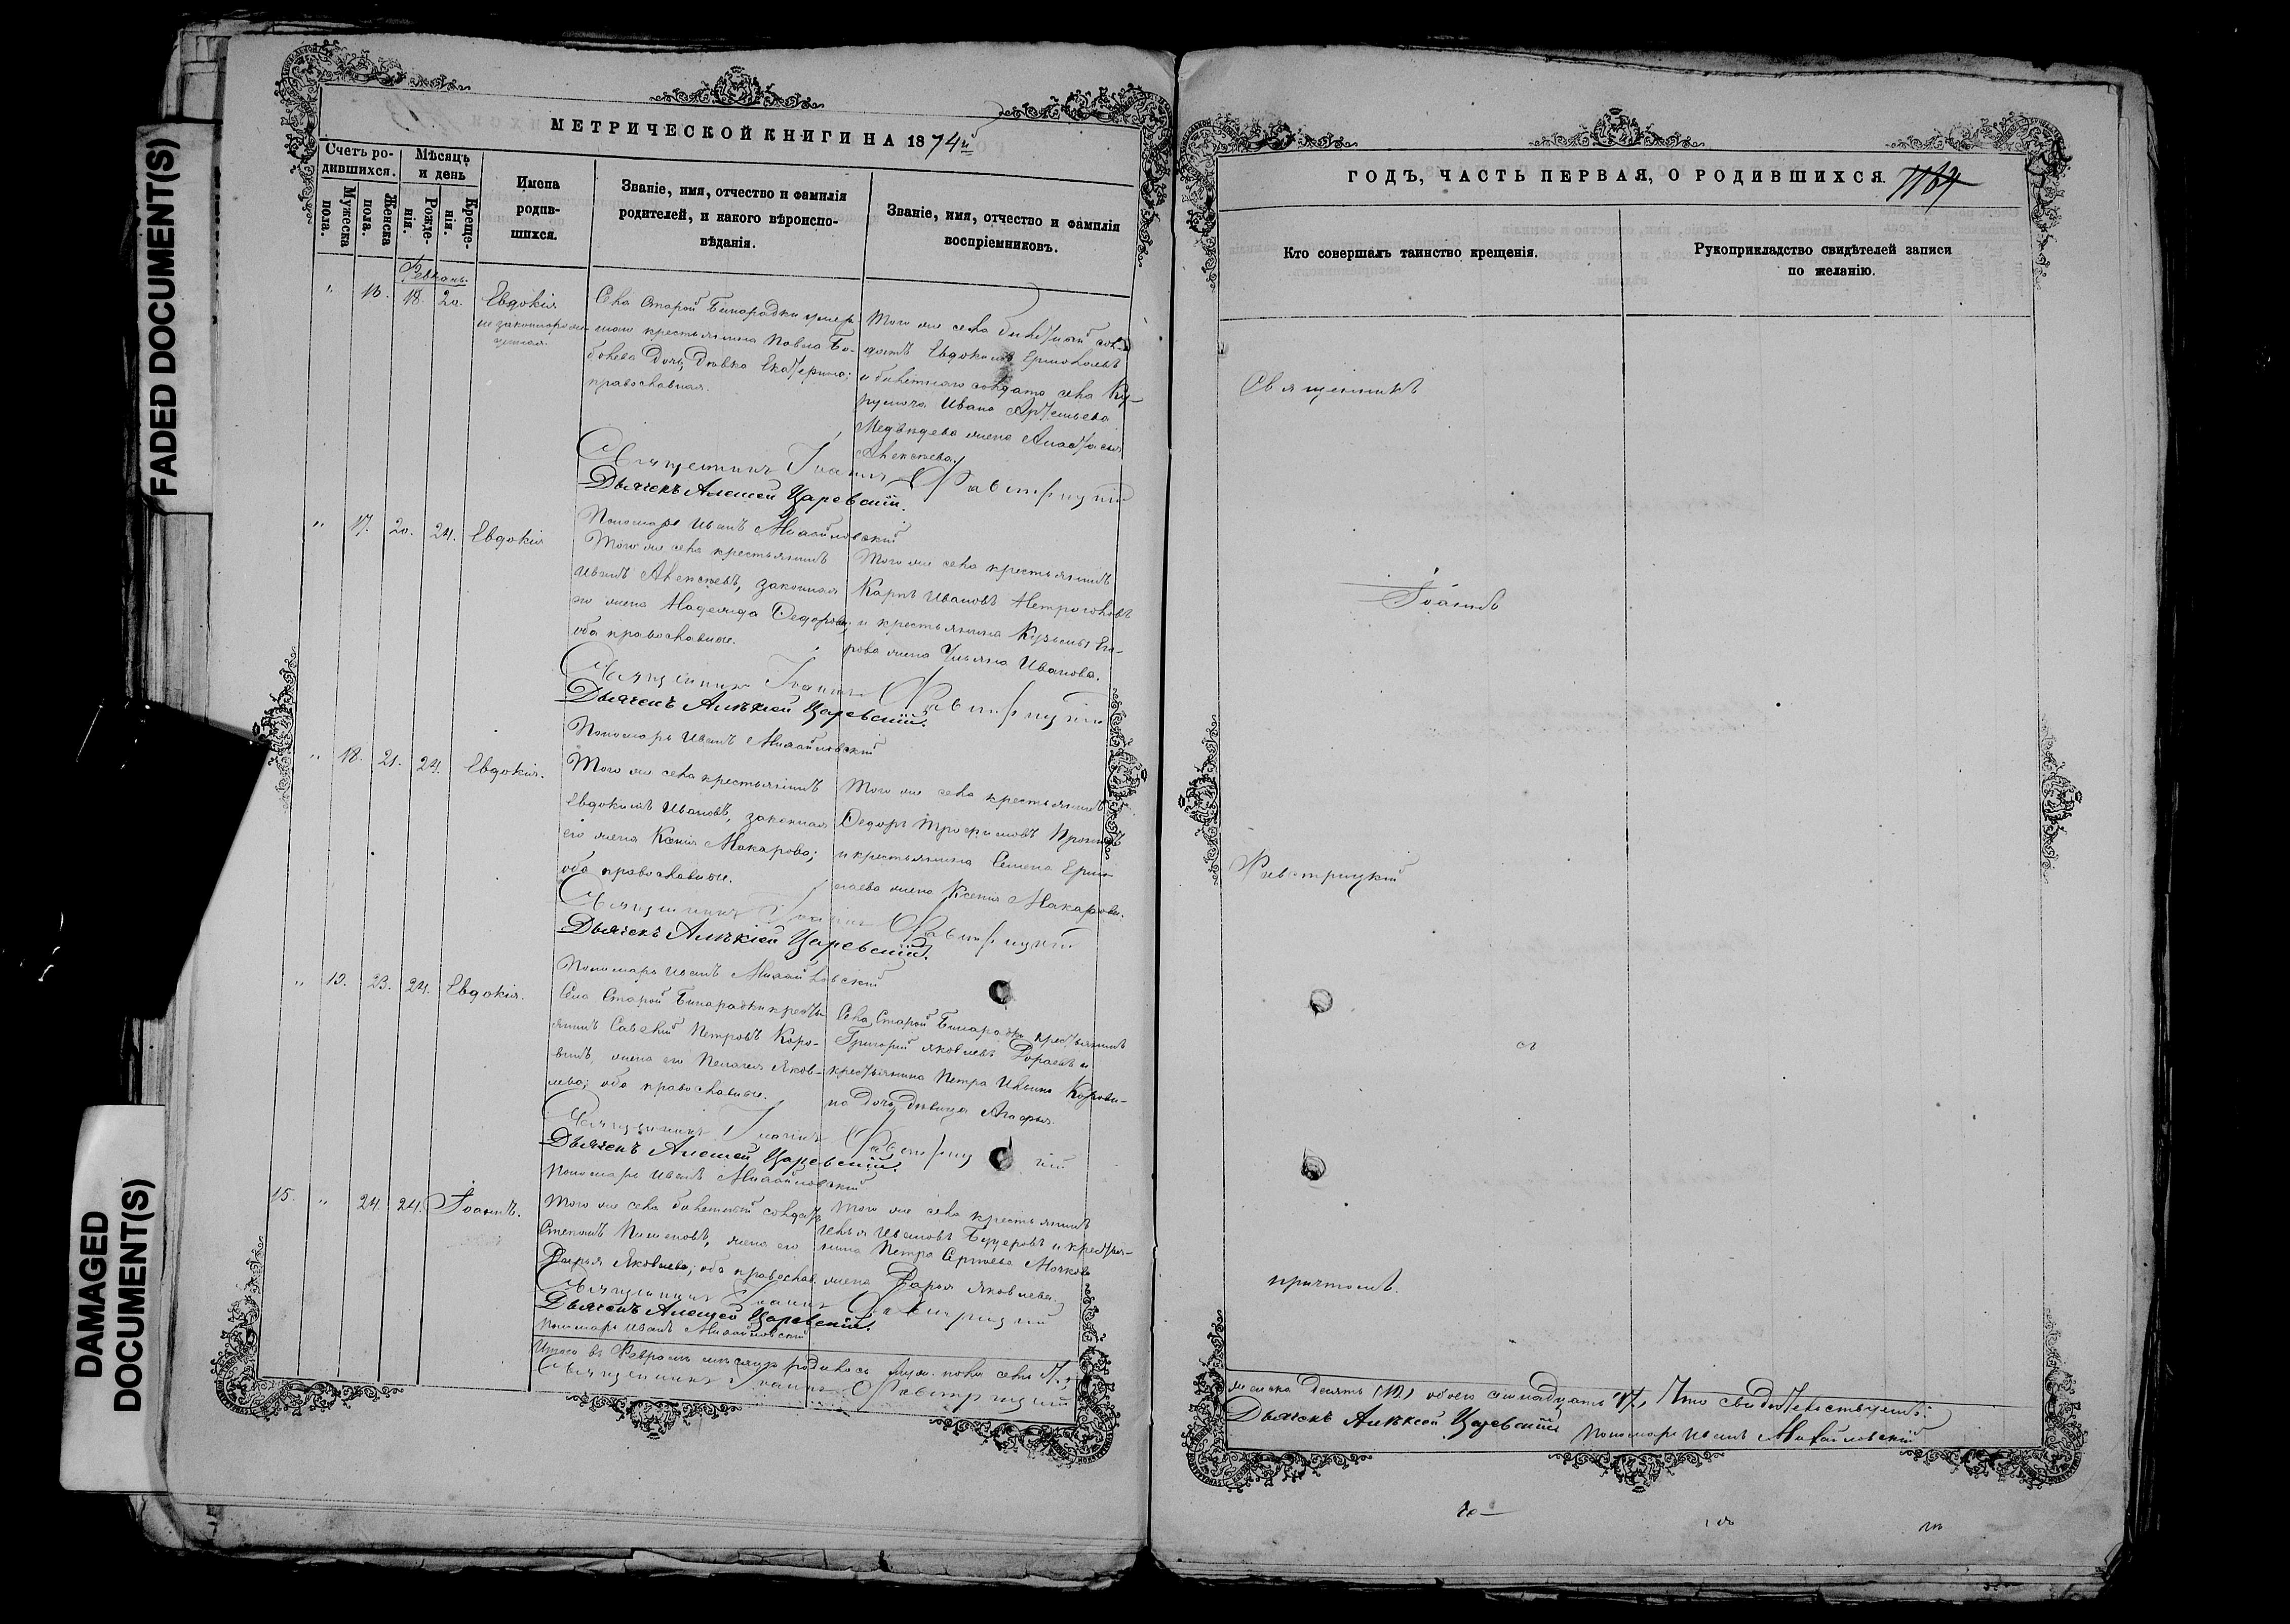 FADED DOCUMENT(S)
DAMAGED
DOCUMENT(S)
МЕТРИЧЕСКОЙ КНИГИ НА 1874й
Счетъ ро-
дившихся.
Мужеска
пола.
Женска
пола.
Мѣсяцъ
и день
Рожде-
нія.
Креще-
нія.
Имена
родив-
шихся.
Званіе, имя, отчество и фамилія
родителей, и какого вѣроиспо-
вѣданія.
Званіе, имя, отчество и фамилія
воспріемниковъ.
" 16. 18. 20. Евдокія
незаконнорож-
Села Старой Бинарадки умер-
шаго крестьянина Павла Бо-
дочь, дѣвка Екатерина;
православная.
Того же села билетный сол-
датъ Евдокимъ Ермолаевъ
и билетнаго солдата села
Ивана Артемьева
Медвѣдева жена Анастасія
Алексѣева.
Священникъ Іоаннъ
Дьячекъ Алексей Царевскій.
Пономарь Иванъ Михайловскій
" 17. 20. 24. Евдокія
Того же села крестьянинъ
Иванъ Алексѣевъ, законная
его жена Надежда Федорова;
оба православные.
Того же села крестьянинъ
Карпъ Ивановъ
и крестьянина Кузьмы Его-
рова жена Ульяна Иванова.
Священникъ Іоаннъ
Дьячекъ Алексей Царевскій.
Пономарь Иванъ Михайловскій
" 18. 21. 24. Евдокія.
Того же села крестьянинъ
Евдокимъ Ивановъ, законная
его жена Ксенія Макарова;
оба православные.
Того же села крестьянинъ
Федоръ Трофимовъ
и крестьянина Семена Ермо-
лаева жена Ксенія Макарова.
Священникъ Іоаннъ
Дьячекъ Алексій Царевскій.
Пономарь Иванъ Михайловскій
" 19. 23. 24. Евдокія.
Села Старой Бинарадки кресть-
янинъ Савелій Петровъ Коро-
винъ, жена его Пелагея Яков-
лева; оба православные.
Села Старой Бинарадки крестьянинъ
Григорій Яковлевъ и
крестьянина Петра Ильина Корови-
на дочь дѣвица Агафья.
Священникъ Іоаннъ
Дьячекъ Алексей Царевскій.
Пономарь Иванъ Михайловскій
15. " 24. 24. Іоаннъ.
Того же села билетный солдатъ
Степанъ Пименовъ, жена его
Дарья Яковлева; оба православ.
Того же села крестьянинъ
Илья Ивановъ и крестья-
нина Петра Сергѣева
жена Дарья Яковлева.
Священникъ Іоаннъ
Дьячекъ Алексей Царевскій.
Пономарь Иванъ Михайловскій
Итого въ Февралѣ мѣсяцѣ родилось муж. пола семь 7,
Священникъ Іоаннъ
ГОДЪ, ЧАСТЬ ПЕРВАЯ, О РОДИВШИХСЯ.
Кто совершалъ таинство крещенія.
Рукоприкладство свидѣтелей записи
по желанію.
Священникъ
Іоаннъ
съ
причтомъ.
женска десять (10) обоего семнадцать 17, Что свидѣтельствуемъ:
Дьячекъ Алексей Царевскій
Пономарь Иванъ Михайловскій